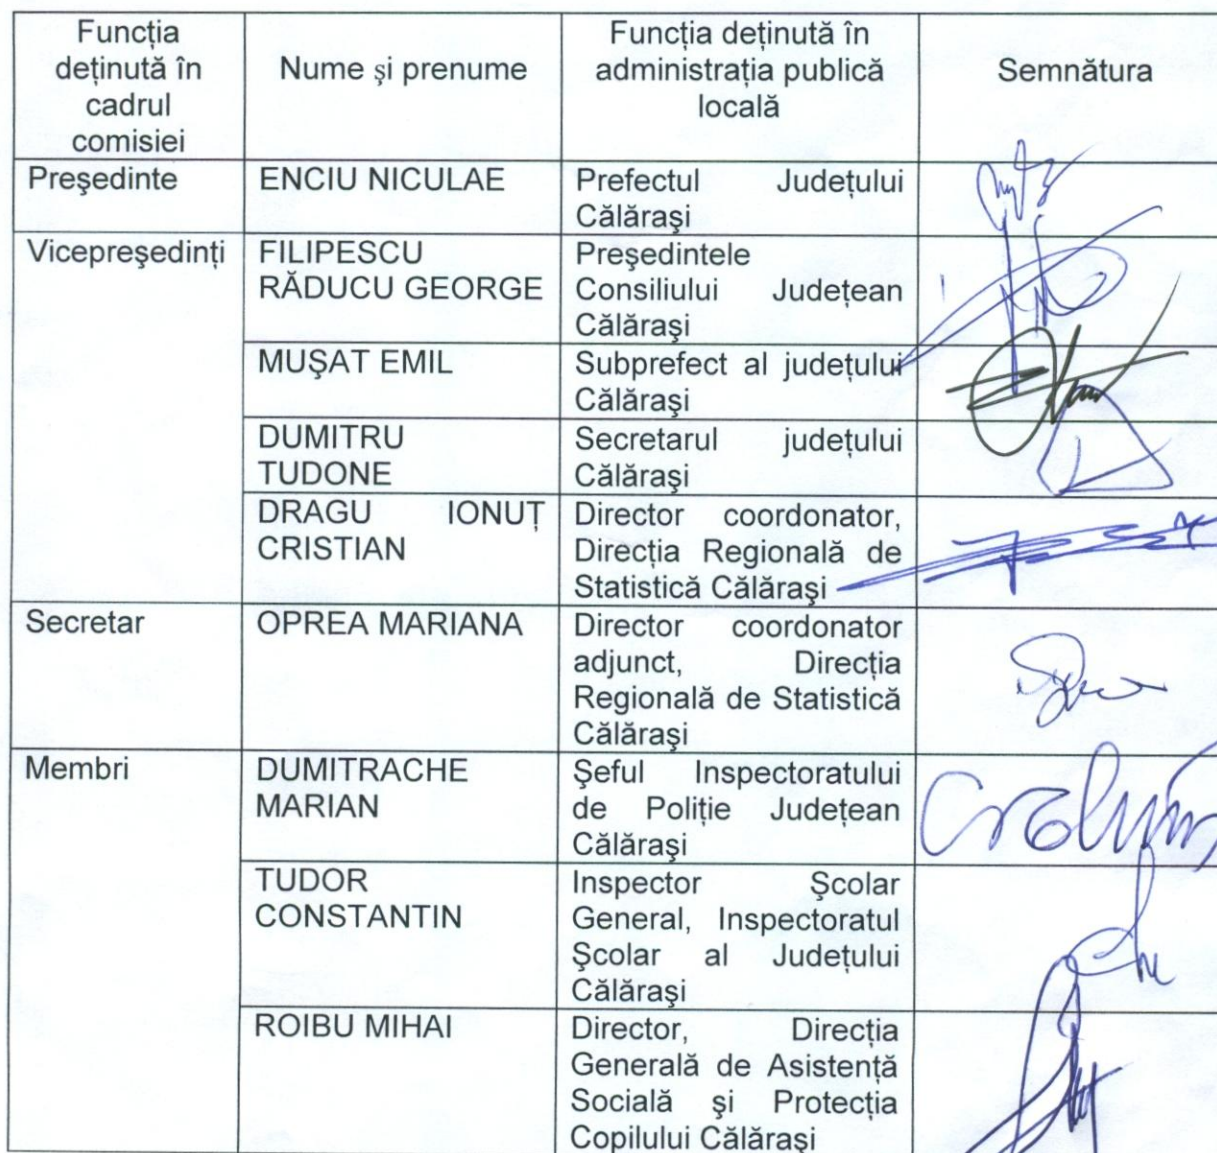 Funcția
deținută în
cadrul
comisiei
Nume și prenume
Funcția deținută în
administrația publică
locală
Semnătura
Preşedinte
ENCIU NICULAE
Prefectul Județului
Călăraşi
Vicepreşedinți
FILIPESCU
RĂDUCU GEORGE
Preşedintele
Consiliului Județean
Călăraşi
MUŞAT EMIL
Subprefect al județului
Călăraşi
DUMITRU
TUDONE
Secretarul județului
Călăraşi
DRAGU IONUȚ
CRISTIAN
Director coordonator,
Direcția Regională de
Statistică Călăraşi
Secretar
OPREA MARIANA
Director coordonator
adjunct, Direcția
Regională de Statistică
Călăraşi
Membri
DUMITRACHE
MARIAN
Şeful Inspectoratului
de Poliție Județean
Călăraşi
TUDOR
CONSTANTIN
Inspector Şcolar
General, Inspectoratul
Şcolar al Județului
Călăraşi
ROIBU MIHAI
Director, Direcția
Generală de Asistență
Socială şi Protecția
Copilului Călăraşi